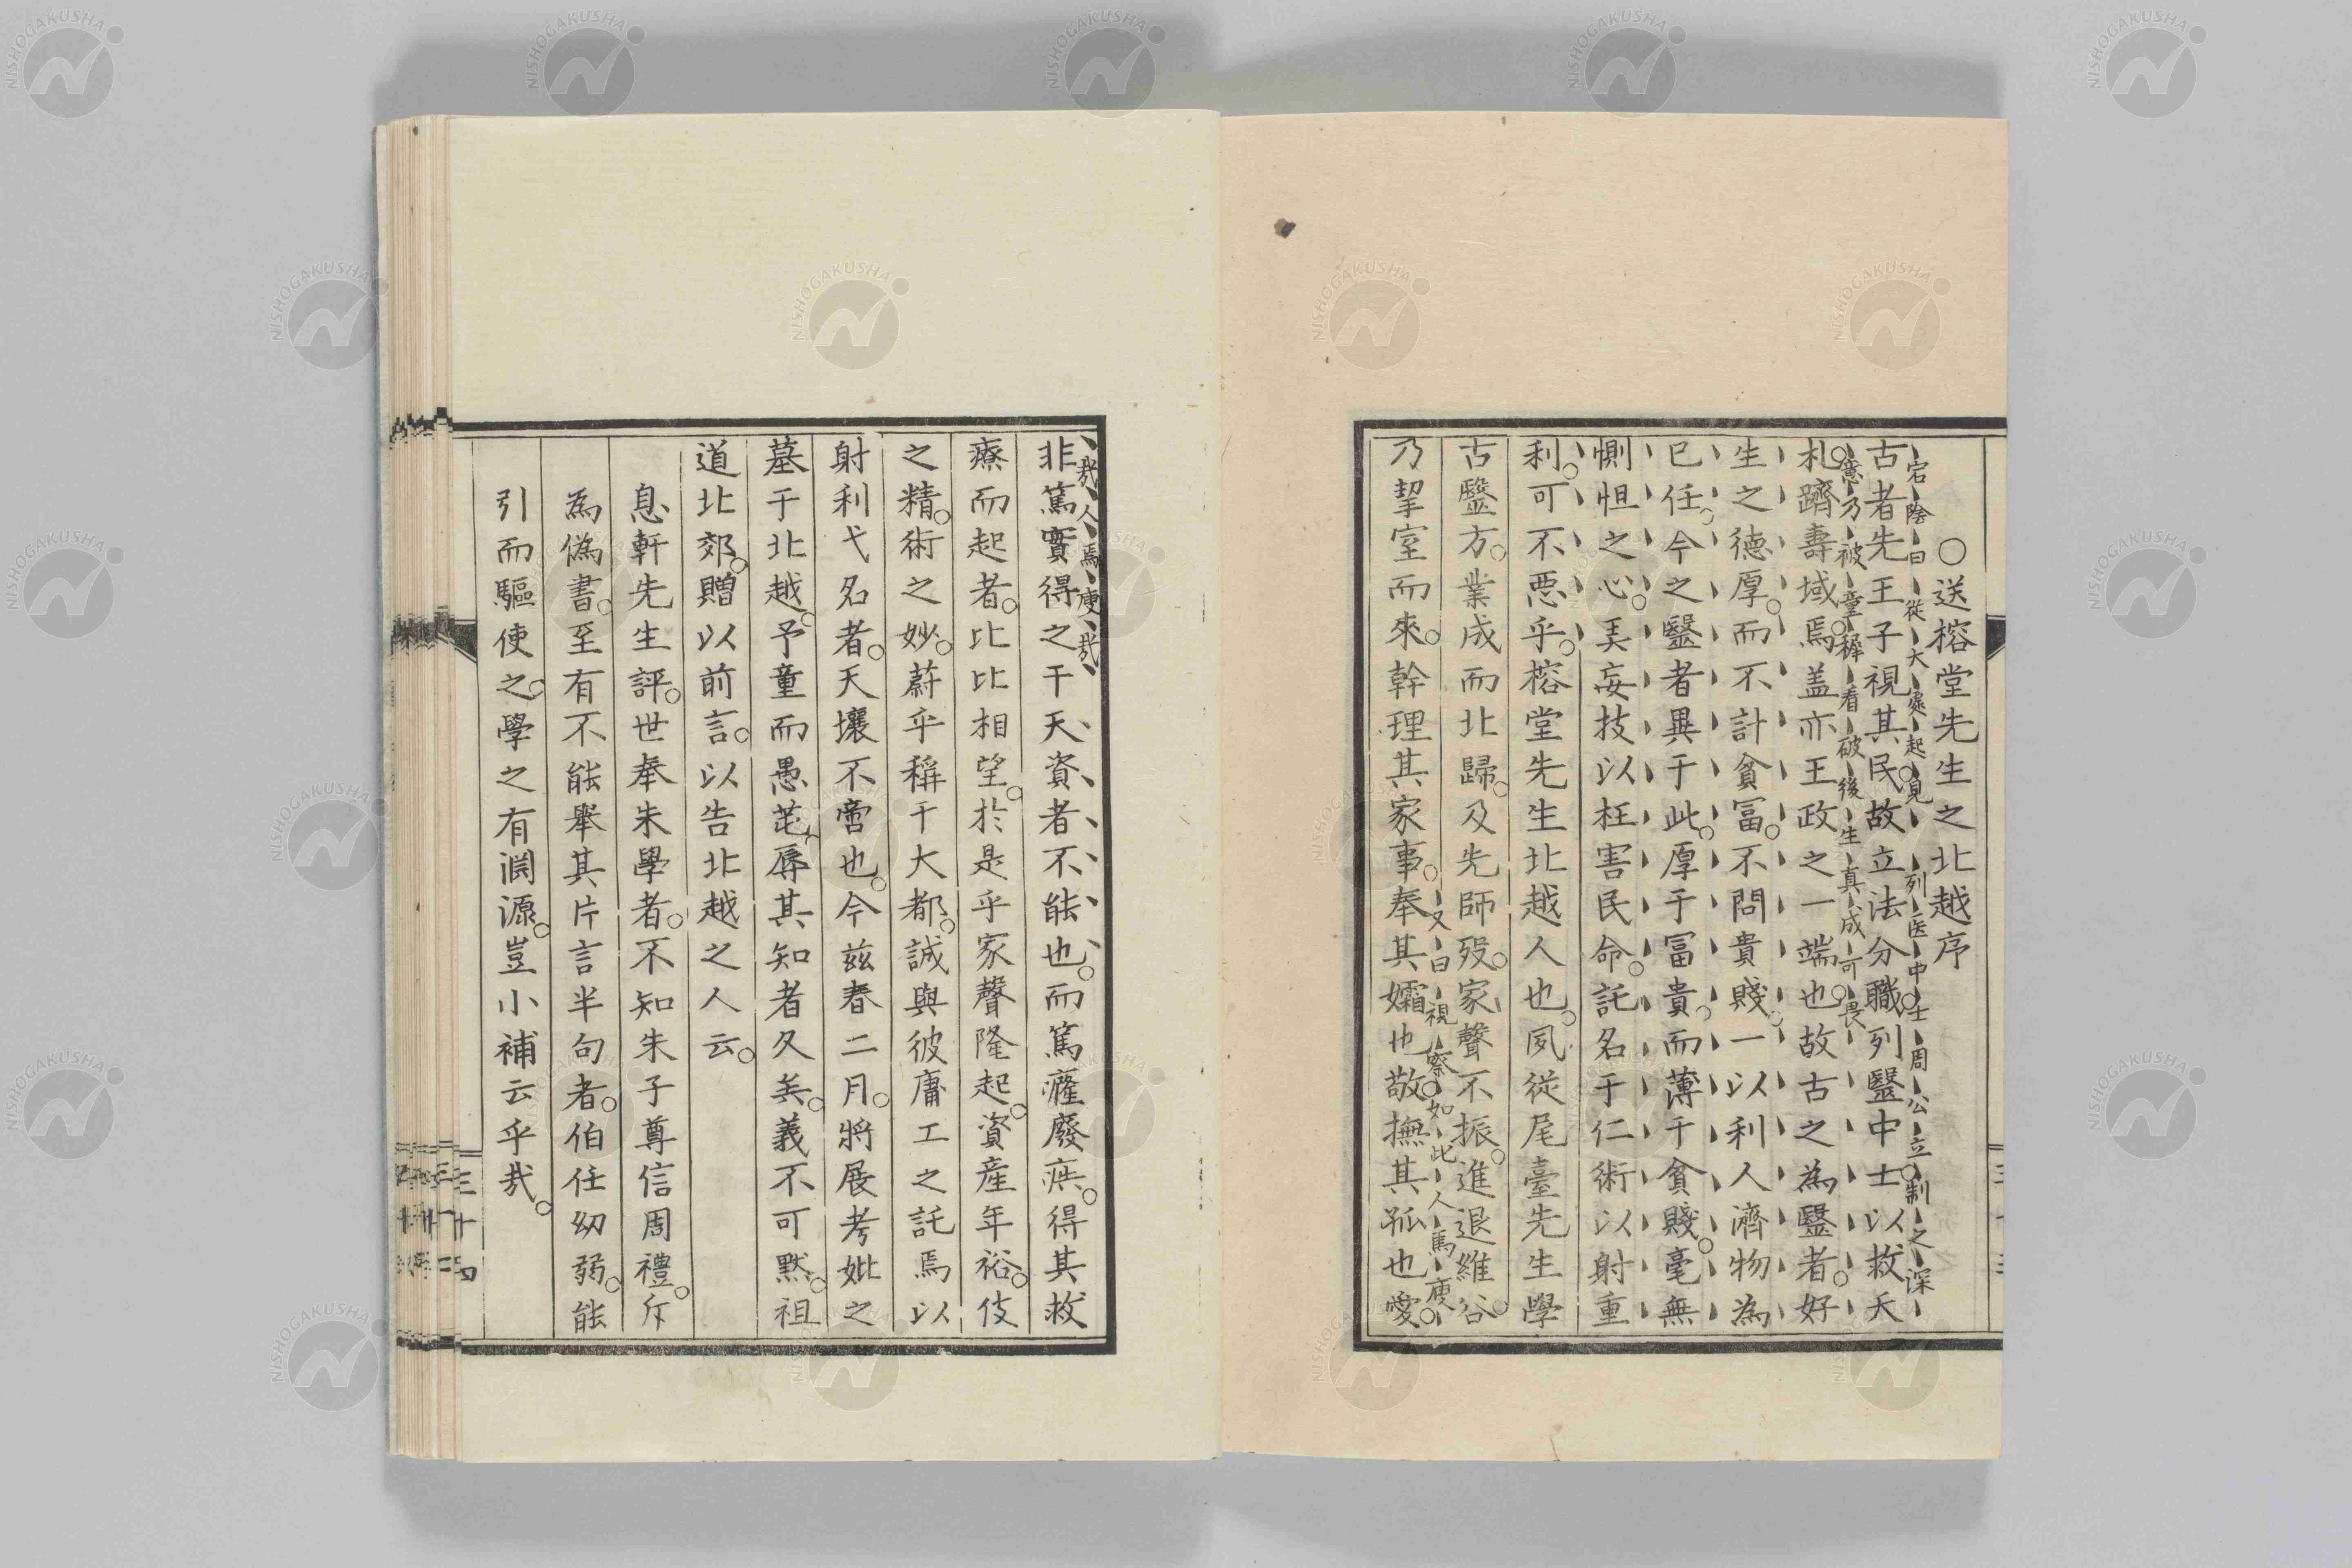 ○送榕堂先生之北越序
宕陰曰従大處起見列医中士周公立制之深
古者先王子視其民故立法分職列毉中士以救夭
意乃被童穉看破後生真成可畏
札躋壽域焉盖亦王政之一端也故古之為毉者好
生之德厚而不計貧冨不問貴賤一以利人濟物為
已任今之毉者異于此厚于冨貴而薄于貧賤毫無
惻怛之心美妄技以枉害民命託名于仁術以射重
利可不悪乎榕堂先生北越人也夙従尾臺先生學
古毉方業成而北歸及先師歿家聲不振進退維谷
又曰視察如此人焉廋
乃挈室而來幹理其家事奉其孀也敬撫其孤也愛
哉人焉廋哉
非篤實得之于天資者不能也而篤癃廢疾得其救
療而起者比比相望於是乎家聲隆起資産年裕伎
之精術之妙蔚乎稱于大都誠與彼庸工之託焉以
射利弋名者天壤不啻也今兹春二月將展考妣之
墓于北越予童而愚茫辱其知者久矣義不可默祖
道北郊贈以前言以告北越之人云
息軒先生評世奉朱學者不知朱子尊信周禮斥
為偽書至有不能舉其片言半句者伯任幼弱能
引而驅使之學之有淵源豈小補云乎哉
三十四
NISHOGAKUSHA